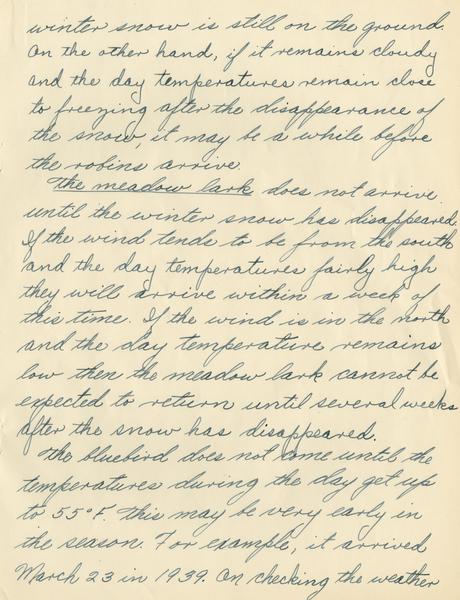 winter snow is still on the ground.
On the other hand, if it remains cloudy
and the day temperatures remain close
to freezing after the disappearance of
the snow, it may be a while before
the robins arrive.
The meadow lark does not arrive
until the winter snow has disappeared.
If the wind tends to be from the south
and the day temperatures fairly high
they will arrive within a week of
this time. If the wind is in the north
and the day temperature remains
low then the meadow lark cannot be
expected to return until several weeks
after the snow has disappeared.
The bluebird does not come until the
temperatures during the day get up
to 55°F. This may be very early in
the season. For example, it arrived
March 23 in 1939. On checking the weather